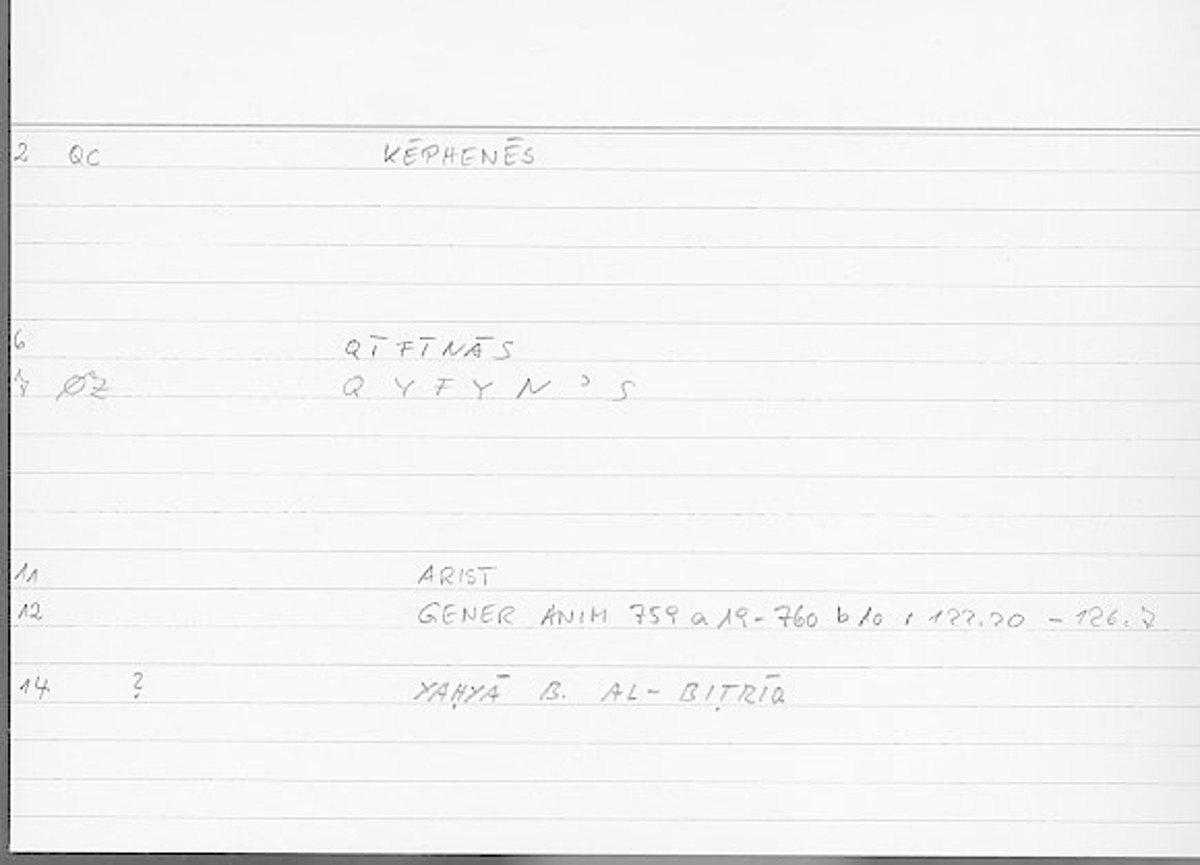 2 QC KĒPHENĒS
6 QĪFĪNĀS
7 ØZ Q Y F Y N ʾ S
11 ARIST
12 GENER ANIM 759 a 19-760 b 10 ; 122.20 - 126.7
14 ? YAḤYĀ B. AL-BIṬRĪQ